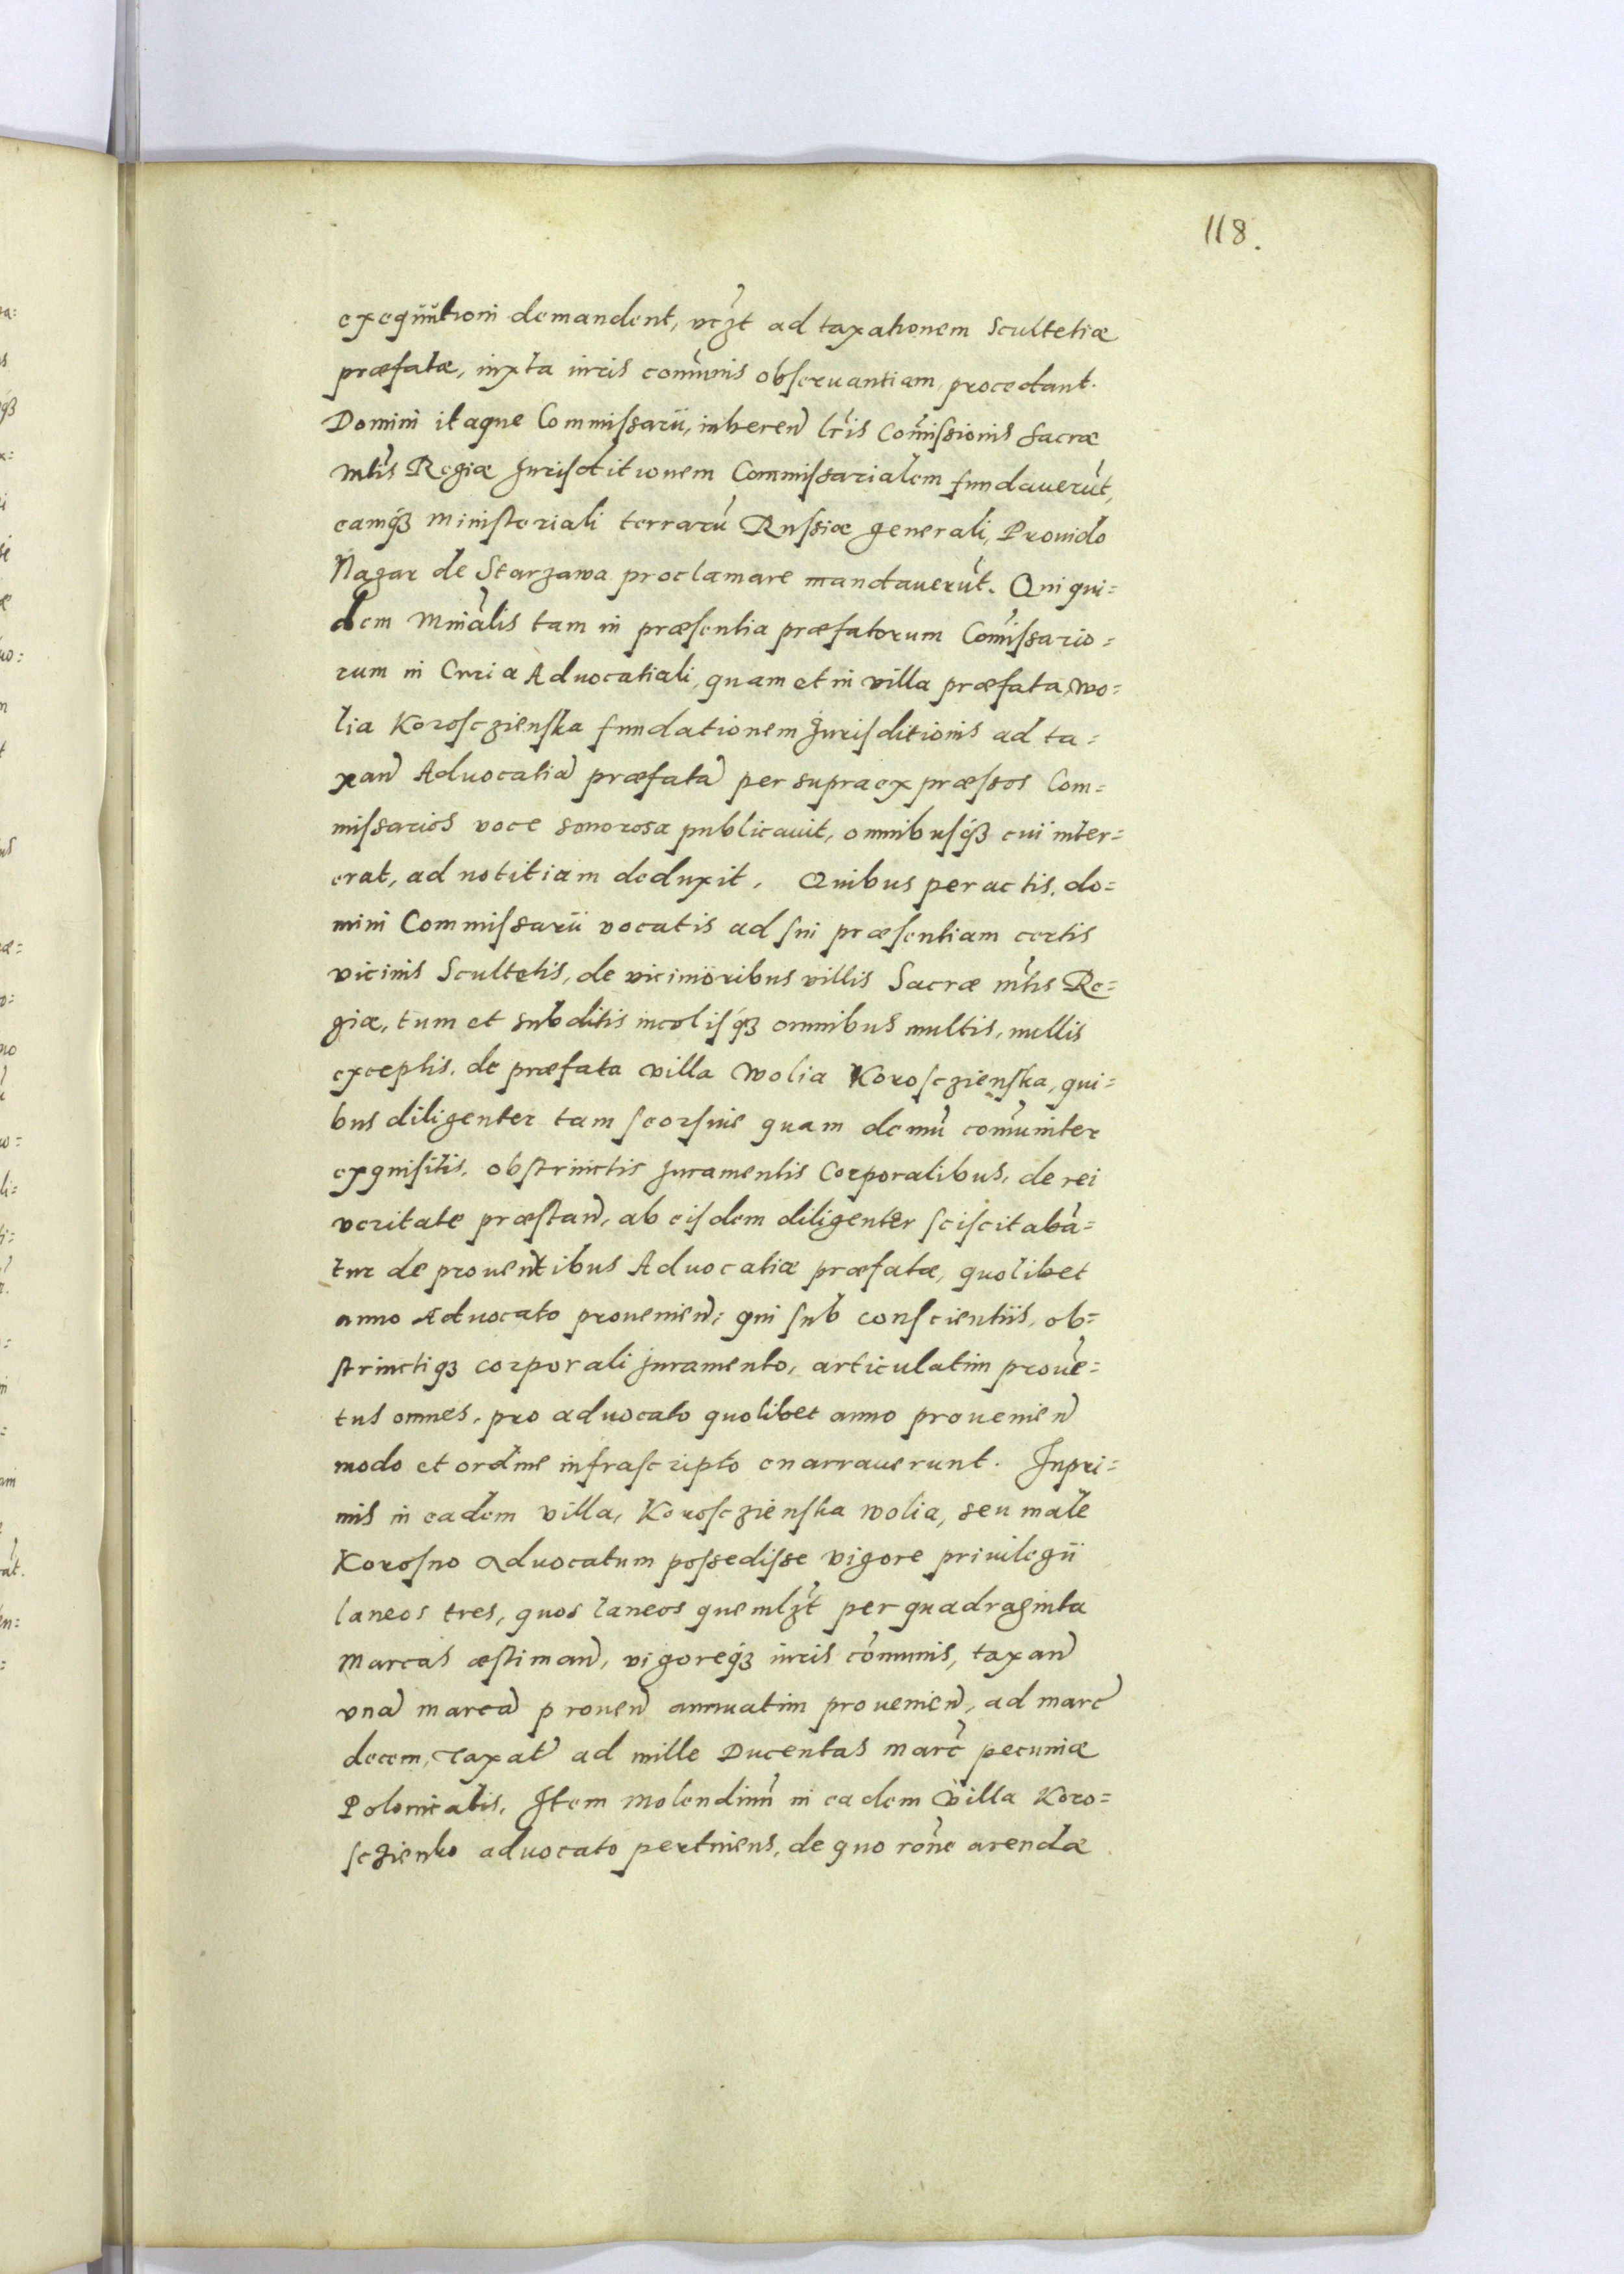 118.
exequutioni demandent, vczt ad taxationem Scultetiæ
præfatæ, iuxta iuris com̃unis obseruantiam procedant.
Domini itaque Commissarii, inheren̄ lr̃is Com̃issionis Sacræ
Mtĩs Regiæ Jurisdictionem Commissarialem fundauerũt,
eamq́ꝫ ministeriali terrarũ Russiæ generali, Prouido
Nazar de Starzawa proclamare mandauerũt. Qui qui=
dem Minãlis tam in præsentia præfatorum Com̃issario=
rum in Curia Aduocatiali, quam et in villa præfata, Wo=
lia Korosczienska fundationem Jurisditionis ad ta=
xan̄ Aduocatiā præfatā per supraexpræssos Com=
missarios voce sonorosa publicauit, omnibusq́ꝫ cui inter=
erat, ad notitiam deduxit. Quibus peractis, do=
mini Commissarii vocatis ad sui præsentiam certis
vicinis Scultetis, de vicinioribus villis Sacræ Mtĩs Re=
giæ, tum et subditis incolisq́ꝫ omnibus multis, nullis
exceptis, de præfata villa Wolia Korosczienska, qui=
bus diligenter tam seorsiue quam demũ com̃uniter
exquisitis, obstrinctis Juramentis Corporalibus, de rei
veritate præstan̄, ab eisdem diligenter sciscitabã=
tur de prouentibus Aduocatiæ præfatæ, quolibet
anno Aduocato prouenien̄; qui sub conscientiis, ob=
strinctiqꝫ corporali juramento, articulatim prouẽ=
tus omnes, pro aduocato quolibet anno prouenien̄
modo et ordine infrascripto enarrauerunt. Inpri=
mis in eadem villa, Korosczienska wolia, seu male
Korosno Aduocatum possedisse vigore priuilegii
laneos tres, quos laneos quemlzt̃ per quadraginta
Marcas æstiman̄, vigoreq́ꝫ iuris cõmunis, taxan̄
vnā marcā prouen̄ annuatim prouenien̄, ad marc̄
decem, Taxat̄ ad mille Ducentas marc̄ pecuniæ
Polonicalis. Item Molendinũ in eadem Villa Koro=
sczienko aduocato pertinens, de quo rõne arendæ